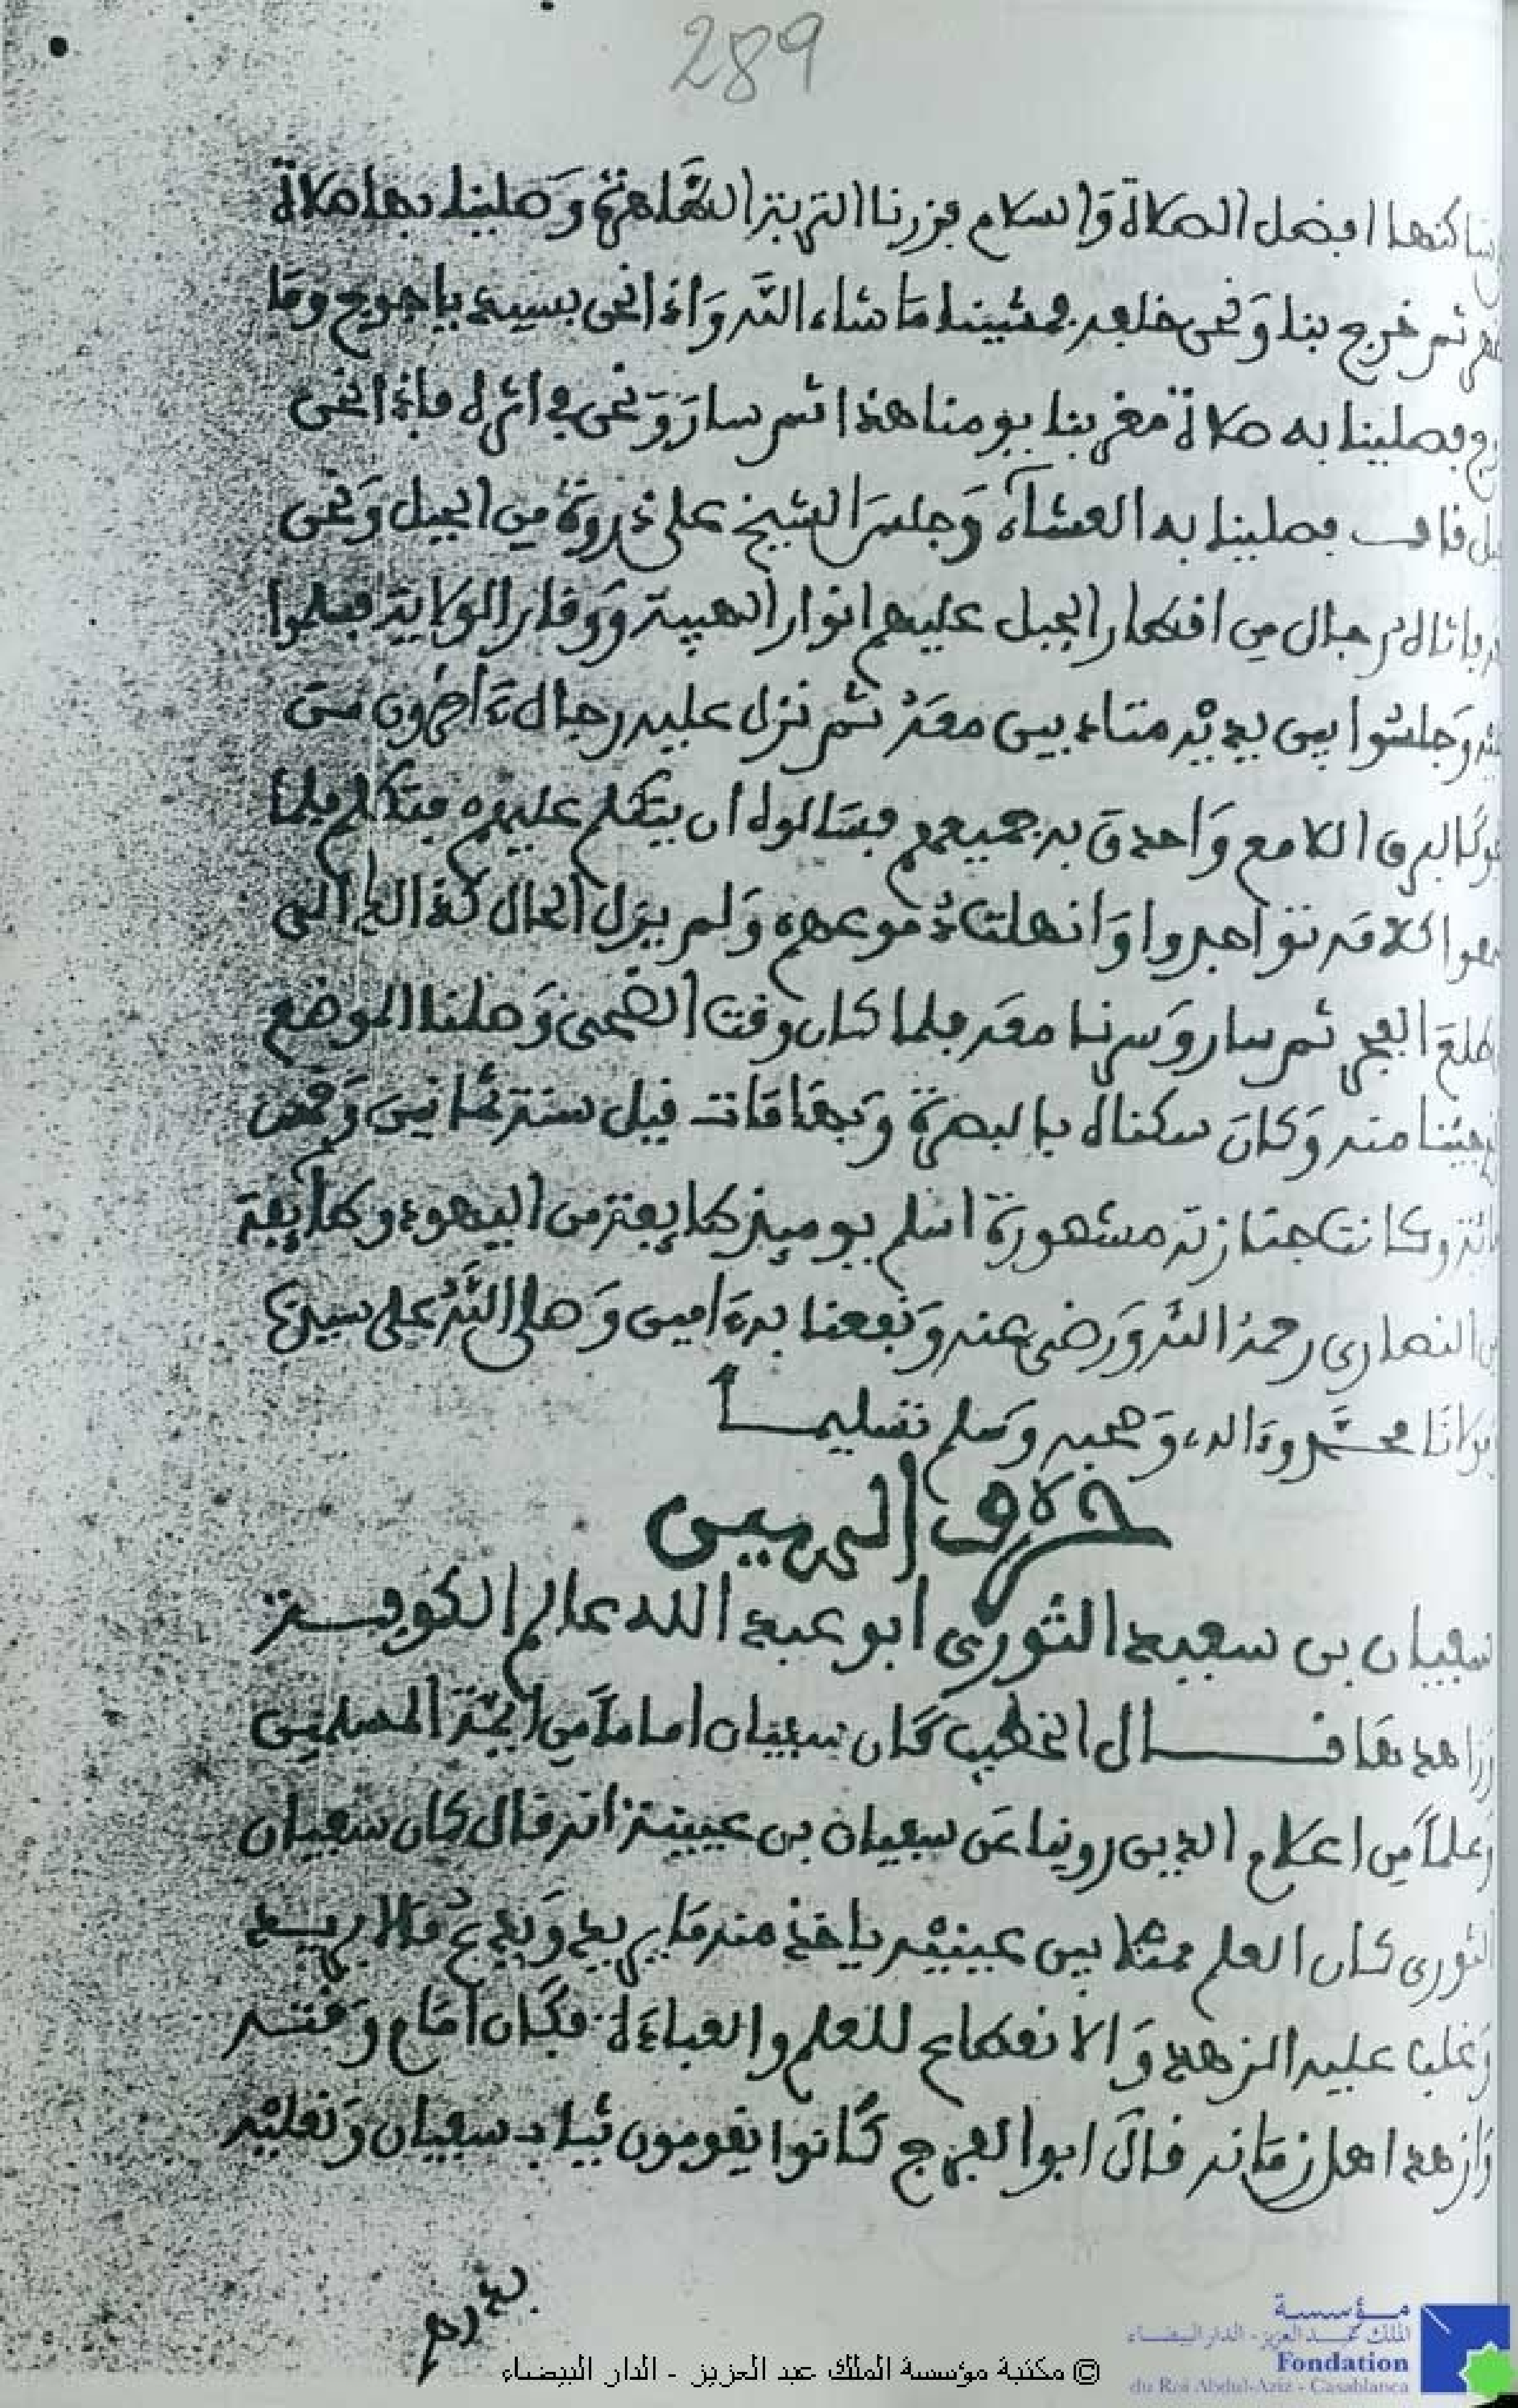 289
ساكنها افضل الصلاة والسلام فزرنا التربة الطاهرة وصلينا بها صلاة
ثم خرج بنا ونحن خلفه فمشينا ما شاء الله واذا نحن بسد ياجوج وما
فصلينا به صلاة مغربنا يومنا هذا ثم سار ونحن في اثره فاذا نحن
قاف فصلينا به العشاء وجلس الشيخ على ذروة من الجبل ونحن
رجال من اقطار الجبل عليهم انوار الهيبة ووقار الولاية فسلموا
وجلسوا بين يديه متادبين معه ثم نزل عليه رجال ءاخرون من
كالبرق اللامع واحدق به جميعهم فسالوه ان يتكلم عليهم فتكلم فلما
كلامه تواجدوا وانهلت دموعهم ولم يزل الحال كذالك الى
طلع الفجر ثم سار وسرنا معه فلما كان وقت الضحى وصلنا الموضع
جئنا منه وكان سكناه بالبصرة وبها مات قبل سنة ثمانين وخمس
وكانت جنازته مشهورة اسلم يوميذ طايفة من اليهود وطايفة
النصارى رحمه الله ورضي عنه ونفعنا به ءامين وصلى الله على سيدنا
محمد وءاله وصحبه وسلم تسليما
حرف السين
سفيان بن سعيد الثورى ابو عبد الله عالم الكوفة
زاهدها قال الخطيب كان سفيان اماما من ايمة المسلمين
وعلما من اعلام الدين روينا عن سفيان بن عيينة انه قال كان سفيان
الثورى كان العلم ممثلا بين عينيه ياخذ منه ما يريد ويدع ما لا يريد
وغلب عليه الزهد والانقطاع للعلم والعبادة فكان امام وقته
وازهد اهل زمانه قال ابو الفرج كانوا يقومون ثياب سفيان ونعليه
بدرهم
© مكتبة مؤسسة الملك عبد العزيز - الدار البيضاء
مؤسسة
الملك عبد العزيز - الدار البيضاء
Fondation
du Roi Abdul-Aziz - Casablanca